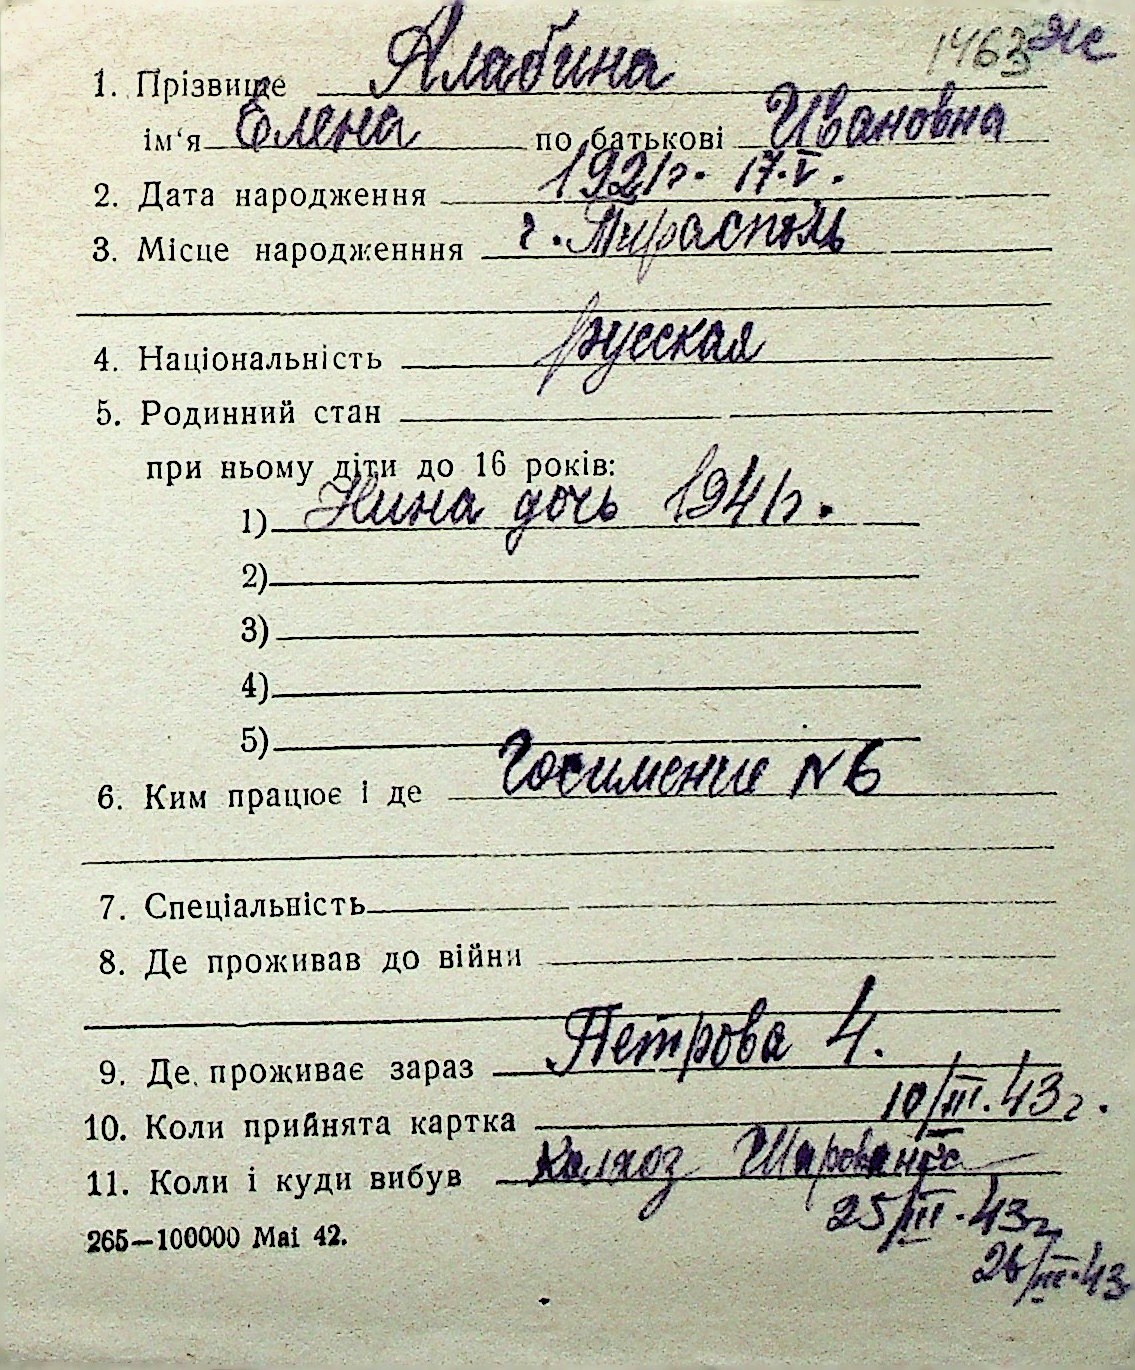 1463 Же
1. Прізвище Алабина
ім‘я Елена по батькові Ивановна
2. Дата народження 1921г. 17.V.
3. Місце народженння г. Тирасполь
4. Національність русская
5. Родинний стан
при ньому діти до 16 років:
1) Нина дочь 1941г.
2)
3)
4)
5)
6. Ким працює і де Госимение № 6
7. Спеціальність
8. Де проживав до війни
9. Де проживає зараз Петрова 4.
10. Коли прийнята картка 10/III.43г.
11. Коли і куди вибув Колхоз
25/III.43г.
26/III.43
265—100000 Mai 42.